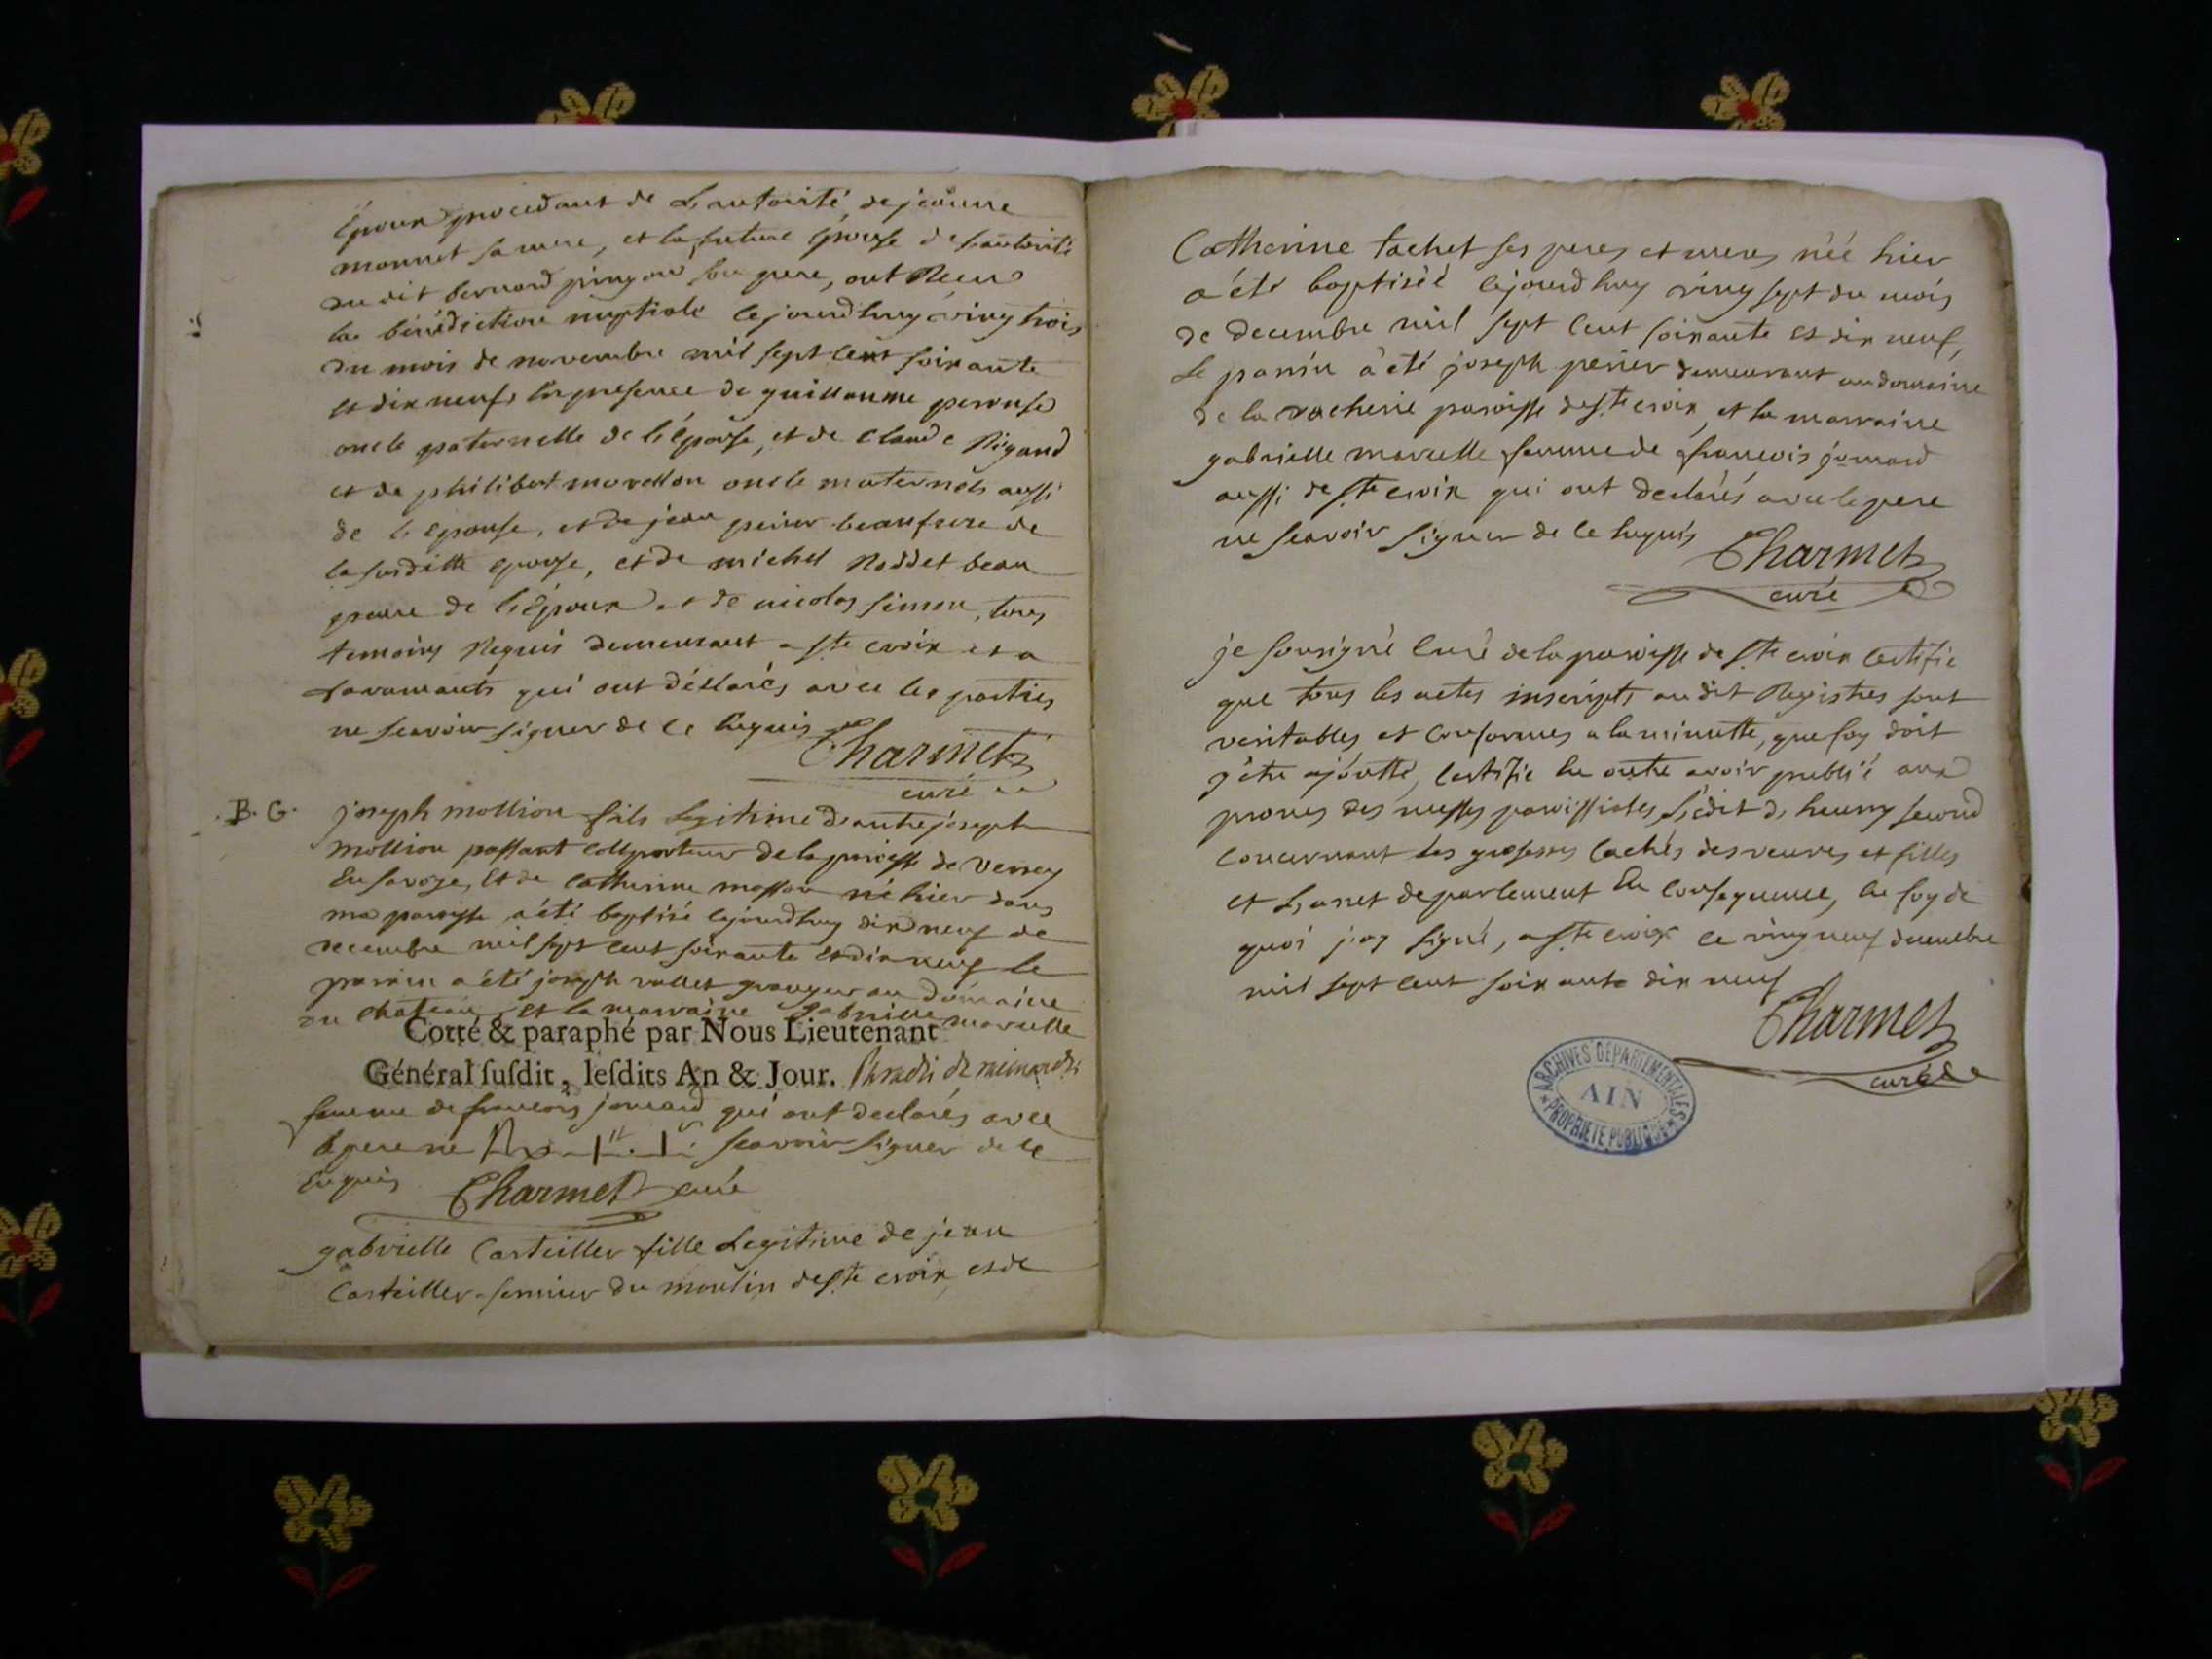 Epoux procedant de L'autorité, de jeanne
monnet sa mere, et la future Epouse de L'autorité
du dit bernard pingon son pere, ont Recu
la bénédiction nuptiale cejourdhuy ving trois
du mois de novembre mil sept cent soixante
et dix neuf, En presence de guillaume perouse
oncle paternelle de L'épouse, et de Claude Rigaud
et de philibert morellon oncle maternels aussi
de L'epouse, et de jean perier beaufrere de
la susditte epouse, et de michel Noddet beau
frere de L'Epoux et de nicolas simon, tous
temoins Requis demeurant a Ste croix et a
qui ont déclarés avec les parties
ne scavoir signer de ce Enquis
Charmet
curé
B. G.
joseph mollion fils Legitime d'autre joseph
mollion passant collporteur de la paroisse de Verrey
En savoye, Et de Catherine masson né hier dans
ma paroisse a été baptisé cejourdhuy dix neuf de
decembre mil sept cent soixante et dix neuf le
parain a été joseph vallet granger au domaine
du chateau, et la marraine Gabrielle marcelle
Cotté & paraphé par Nous Lieutenant
Général susdit, lesdits An & Jour.
femme de francois jomard qui ont declarés avec
le pere ne scavoir signer de ce
Enquis Charmet curé
gabrielle Carteiller fille Legitime de jean
Carteiller fermier du moulin de Ste croix, et de
Catherine tachet ses peres et meres néé hier
a été baptiséé cejourdhuy ving sept du mois
de decembre mil sept cent soixante et dix neuf,
Le parain a été joseph perier demeurant au domaine
de la vacherie paroisse de Ste croix, et la marraine
gabrielle marcelle femme de francois jomard
aussi de Ste croix qui ont declarés avec le pere
ne scavoir signer de ce Enquis
Charmet
curé
je sousigné Curé de la paroisse de Ste croix Certifie
que tous les actes inscripts au dit Registres sont
veritables et conformes a la minutte, que foy doit
y être ajoutté, Certifie En outre avoir publié aux
prones des messes paroissiales L'edit d'henry second
concernant les grosesses cachés des veuves et filles
et L'arret de parlement En Consequence, En foy de
quoi j'ay signé, a Ste croix ce ving neuf decembre
mil sept cent soixante dix neuf
Charmet
curé
ARCHIVES DEPARTEMENTALES
AIN
PROPRIETE PUBLIQUE